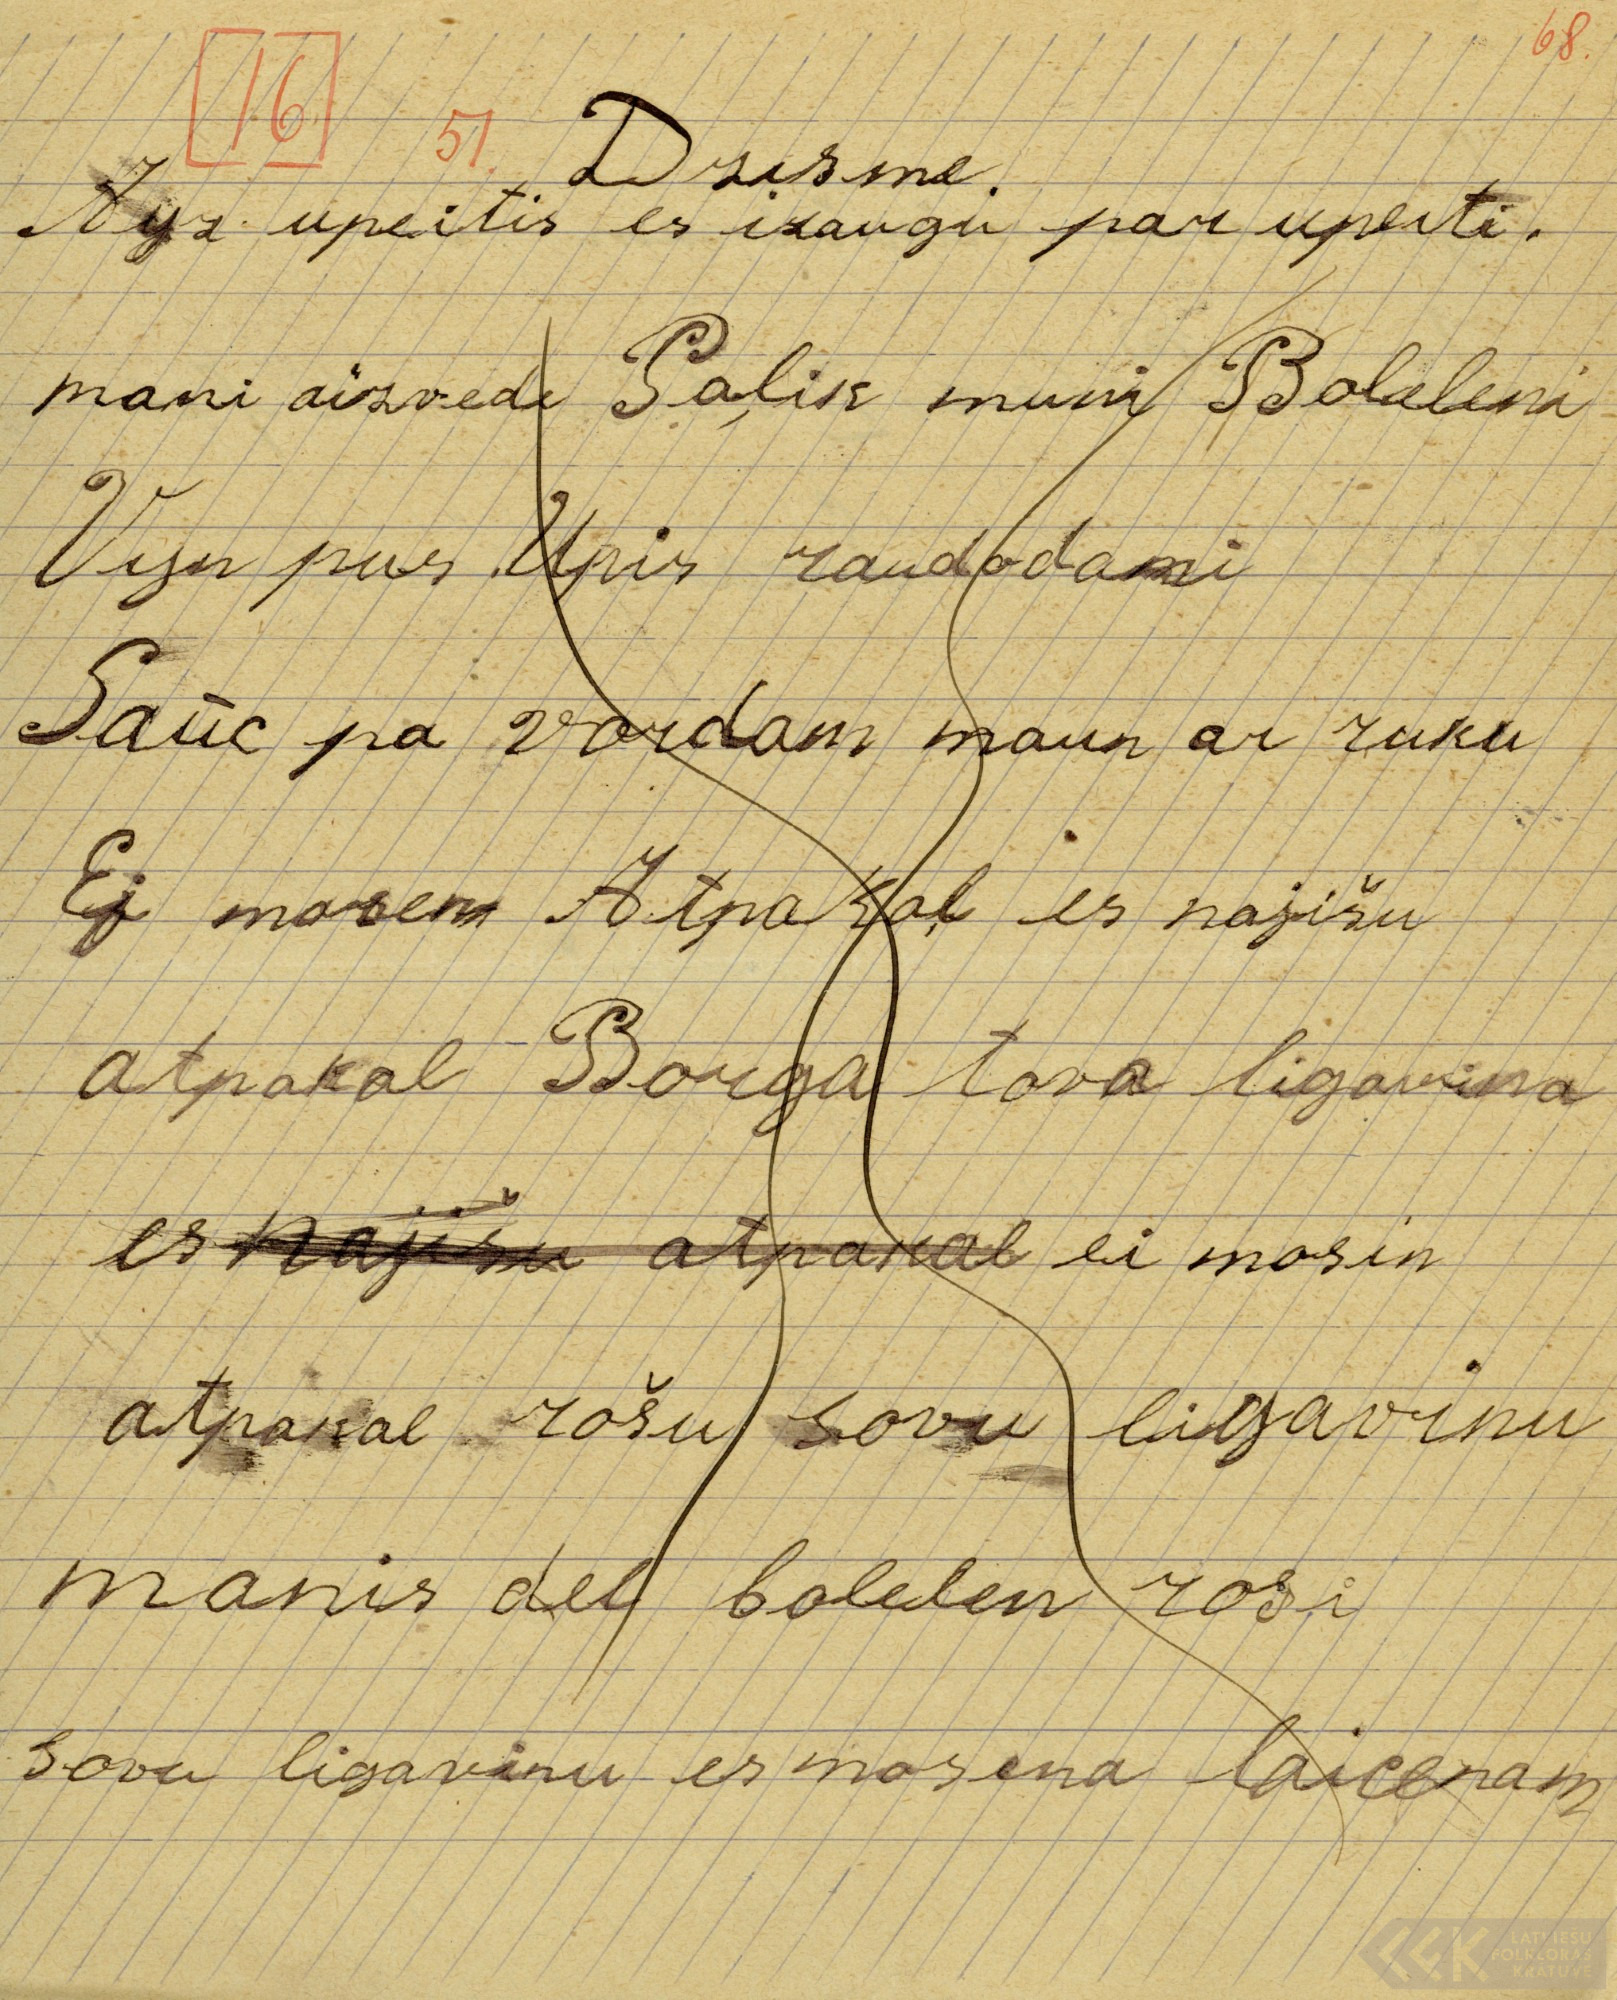 16 51. 68.
Dzisme.
Ayz upeitis es izaugu par upeiti.
mani aizvede Paļik muni Boleleni
Vyn pus Upis raudodami
Sauc pa vordam maun ar ruku
Ej mosem Atpakaļ es najišu
atpakal Borga tova ligavina
es najišu atpakal ei mosin
atpakal rošu sovu ligavinu
manis deļ bolelen rosi
sovu ligavinu es mosena laicenam
LATVIEŠU
FOLKLORAS
KRĀTUVE